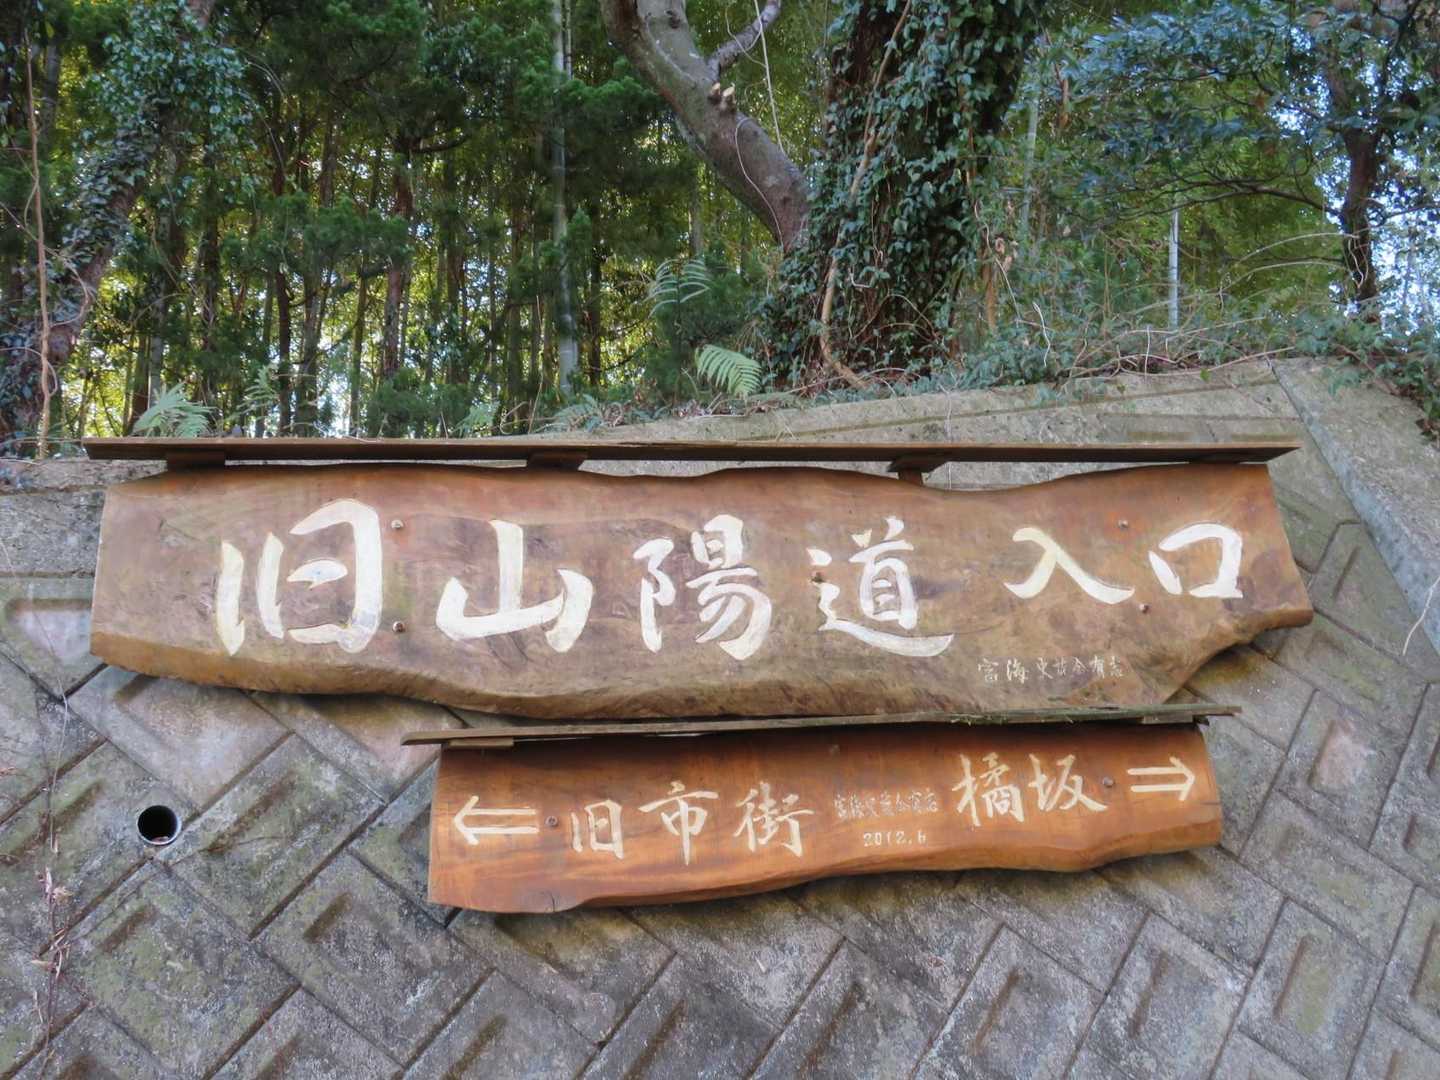 旧山陽道 入口
富海史談会有志
← 旧市街 富海史談会有志 橘坂 ⇒
2012.6